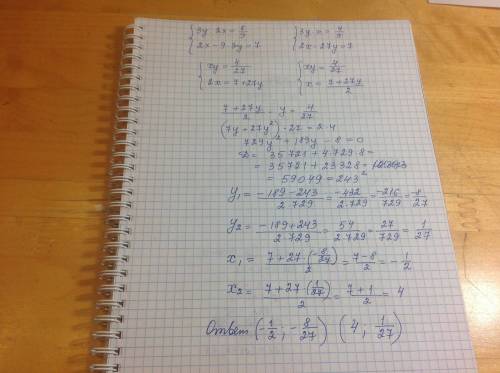 {3y·2x = 8/9 {3y·x = 4/9
{2x - 9·3y = 7 {2x - 27y = 7
{xy = 4/27 {xy = 4/27
{2x = 7 + 27y {x = (7 + 27y)/2
(7 + 27y)/2 · y = 4/27
(7y + 27y²)·27 = 2·4
729y² + 189y - 8 = 0
D = 35721 + 4·729·8 =
= 35721 + 23328 =
= 59049 = 243²
y₁ = (-189 - 243)/(2·729) = -432/(2·729) = -216/729 = -8/27
y₂ = (-189 + 243)/(2·729) = 54/(2·729) = 27/729 = 1/27
x₁ = (7 + 27·(-8/27))/2 = (7 - 8)/2 = -1/2
x₂ = (7 + 27·(1/27))/2 = (7 + 1)/2 = 4
Ответ (-1/2; -8/27) (4; 1/27)